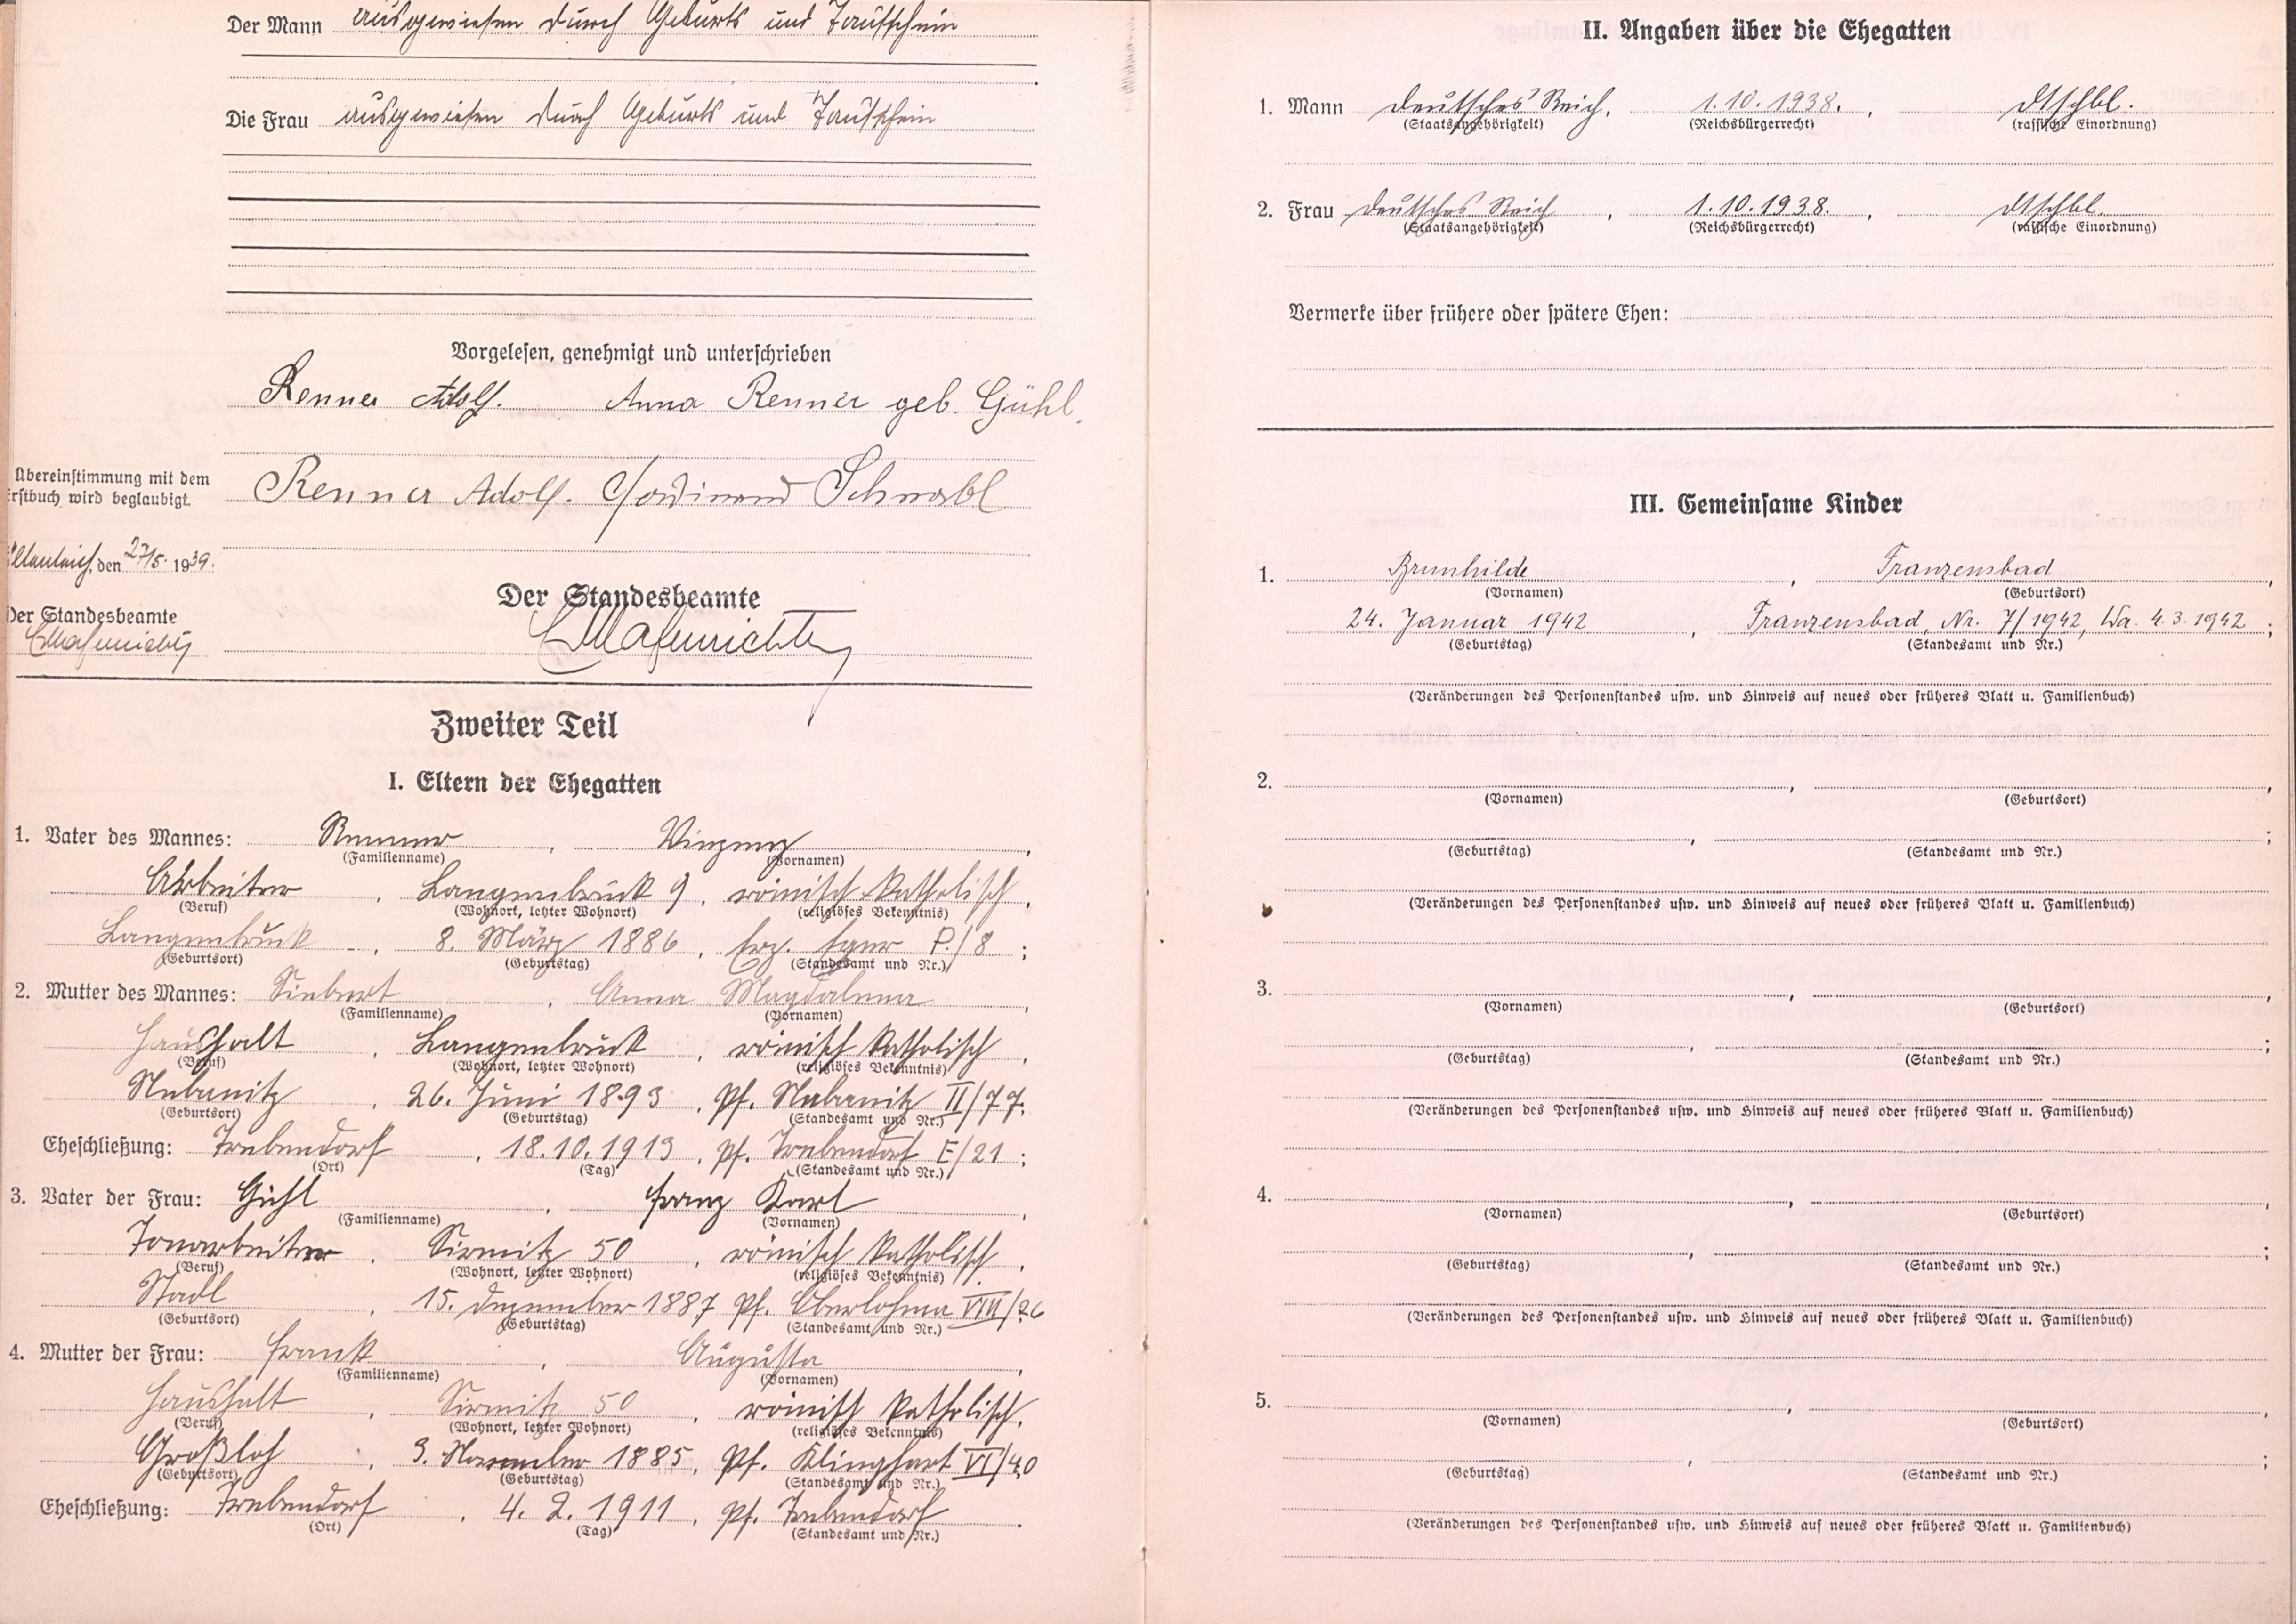 Der Mann ausgewiesen durch Geburts und Taufschein
Die Frau ausgewiesen durch Geburts und Taufschein
Vorgelesen, genehmigt und unterschrieben
Renner Adolf. Anna Renner geb. Gühl.
Übereinstimmung mit dem
Erstbuch wird beglaubigt.
Renner Adolf. Ferdinand Schnabl
den 27/5. 1939.
Der Standesbeamte
Der Standesbeamte
Zweiter Teil
I. Eltern der Ehegatten
1. Vater des Mannes: Renner, Vinzenz,
(Familienname) (Vornamen)
Arbeiter, Langenbruck 9, römisch katholisch,
(Beruf) (Wohnort, letzter Wohnort) (religiöses Bekenntnis)
Langenbruck, 8. März 1886, Erz. Eger P./8;
(Geburtsort) (Geburtstag) (Standesamt und Nr.)
2. Mutter des Mannes: Siebert, Anna Magdalena,
(Familienname) (Vornamen)
Haushalt, Langenbruck, römisch katholisch,
(Beruf) (Wohnort, letzter Wohnort) (religiöses Bekenntnis)
Nebanitz, 26. Juni 1893, Pf. Nebanitz II/77;
(Geburtsort) (Geburtstag) (Standesamt und Nr.)
Eheschließung: Trebendorf, 18.10.1913, Pf. Trebendorf E/21;
(Ort) (Tag) (Standesamt und Nr.)
3. Vater der Frau: Gühl, Franz Karl,
(Familienname) (Vornamen)
Tonarbeiter, Sirmitz 50, römisch katholisch,
(Beruf) (Wohnort, letzter Wohnort) (religiöses Bekenntnis)
Stadl, 15. Dezember 1887, Pf. Oberlohma VIII/26
(Geburtsort) (Geburtstag) (Standesamt und Nr.)
4. Mutter der Frau: Frank, Augusta,
(Familienname) (Vornamen)
Haushalt, Sirmitz 50, römisch katholisch,
(Beruf) (Wohnort, letzter Wohnort) (religiöses Bekenntnis)
Großloh, 3. November 1885, Pf. Klinghart VI/40
(Geburtsort) (Geburtstag) (Standesamt und Nr.)
Eheschließung: Trebendorf, 4. 2. 1911, Pf. Trebendorf.
(Ort) (Tag) (Standesamt und Nr.)
II. Angaben über die Ehegatten
1. Mann Deutsches Reich, 1.10.1938., dtschbl.
(Staatsangehörigkeit) (Reichsbürgerrecht) (rassische Einordnung)
2. Frau Deutsches Reich, 1.10.1938., dtschbl.
(Staatsangehörigkeit) (Reichsbürgerrecht) (rassische Einordnung)
Vermerke über frühere oder spätere Ehen:
III. Gemeinsame Kinder
1. Brunhilde, Franzensbad,
(Vornamen) (Geburtsort)
24. Januar 1942, Franzensbad, Nr. 7/1942, Wa. 4.3.1942;
(Geburtstag) (Standesamt und Nr.)
(Veränderungen des Personenstandes usw. und Hinweis auf neues oder früheres Blatt u. Familienbuch)
2. , ,
(Vornamen) (Geburtsort)
, ;
(Geburtstag) (Standesamt und Nr.)
(Veränderungen des Personenstandes usw. und Hinweis auf neues oder früheres Blatt u. Familienbuch)
3. , ,
(Vornamen) (Geburtsort)
, ;
(Geburtstag) (Standesamt und Nr.)
(Veränderungen des Personenstandes usw. und Hinweis auf neues oder früheres Blatt u. Familienbuch)
4. , ,
(Vornamen) (Geburtsort)
, ;
(Geburtstag) (Standesamt und Nr.)
(Veränderungen des Personenstandes usw. und Hinweis auf neues oder früheres Blatt u. Familienbuch)
5. , ,
(Vornamen) (Geburtsort)
, ;
(Geburtstag) (Standesamt und Nr.)
(Veränderungen des Personenstandes usw. und Hinweis auf neues oder früheres Blatt u. Familienbuch)